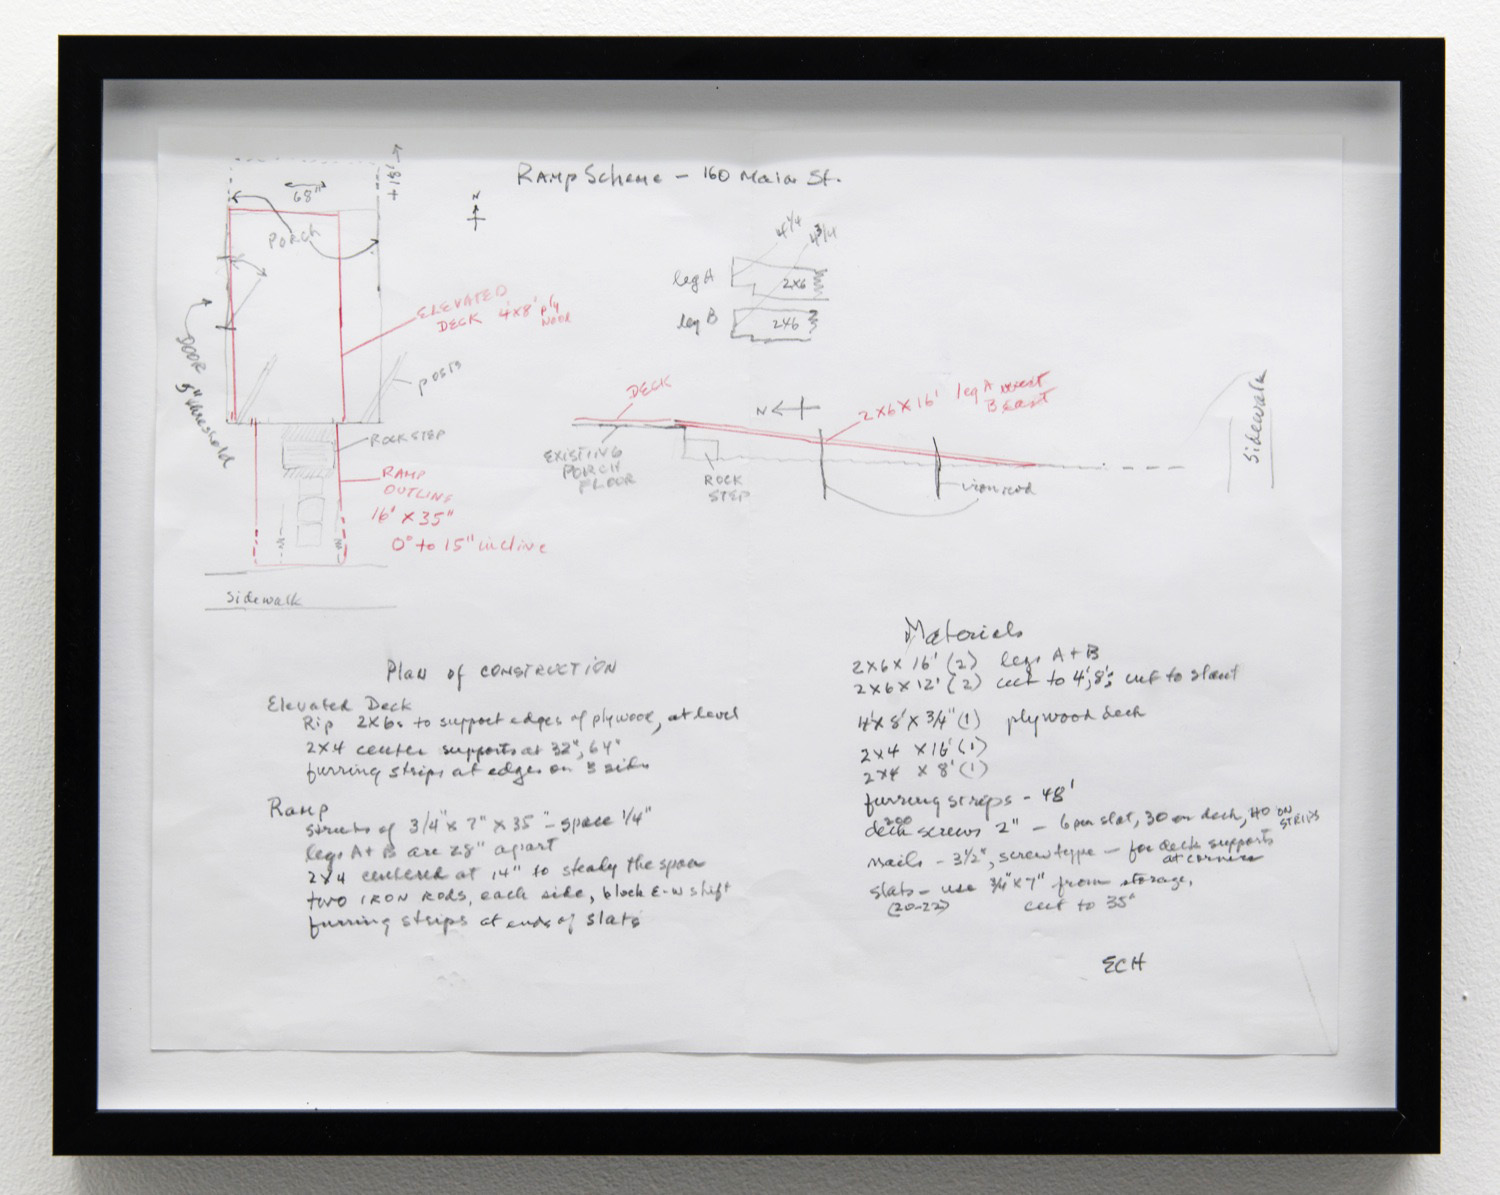 RAMP Scheme - 160 Main St.
+18'
68"
N
PORCH
4 1/4
4 3/4
leg A
2x6
leg B
2x6
ELEVATED
DECK 4'x8' ply
DOOR
5" threshold
posts
ROCK STEP
RAMP
OUTLINE
16' x 35"
0" to 15" incline
Sidewalk
DECK
N
2x6x16' leg A west
B east
EXISTING
PORCH
FLOOR
ROCK
STEP
iron rod
Sidewalk
Plan of CONSTRUCTION
Elevated Deck
Rip 2x6s to support edges of plywood, at level
2x4 center supports at 32", 64"
furring strips at edges on 3 sides
Ramp
struts of 3/4" x 7" x 35" - space 1/4"
legs A + B are 28" apart
2x4 centered at 14" to steady the span
two IRON RODS, each side, block E-W shift
furring strips at ends of slats
Materials
2x6x16' (2) legs A + B
2x6x12' (2) cut to 4', 8'; cut to slant
4'x8'x3/4" (1) plywood deck
2x4 x16' (1)
2x4 x 8' (1)
furring strips - 48'
200
deck screws 2" - 6 per slat, 30 on deck, 40 ON STRIPS
nails - 3 1/2", screw type - for deck supports
at corners
slats - use 3/4"x7" from storage,
(20-22) cut to 35"
ECH